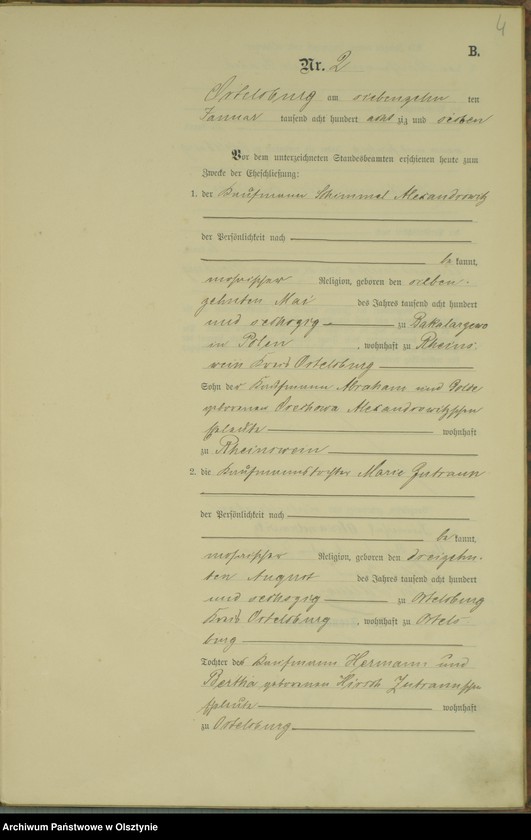 4
B.
Nr. 2
Ortelsburg am siebenzehn ten
Januar tausend acht hundert acht zig und sieben
Vor dem unterzeichneten Standesbeamten erschienen heute zum
Zwecke der Eheschließung:
1. der Kaufmann Schimmel Alexandrowitz
der Persönlichkeit nach
be kannt,
mosaischer Religion, geboren den sieben-
zehnten Mai des Jahres tausend acht hundert
und sechszig zu Bakalarzewo
in Polen, wohnhaft zu Rheins-
wein Kreis Ortelsburg
Sohn der Kaufmann Abraham und Golde
geborenen Alexandrowitzschen
Eheleute wohnhaft
zu Rheinswein
2. die Kaufmannstochter Marie Zutrauen
der Persönlichkeit nach
be kannt,
mosaischer Religion, geboren den dreizehn-
ten August des Jahres tausend acht hundert
und sechszig zu Ortelsburg
Kreis Ortelsburg, wohnhaft zu Ortels-
burg
Tochter des Kaufmann Hermann und
Bertha geborenen Hirsch
Eheleute wohnhaft
zu Ortelsburg
Archiwum Państwowe w Olsztynie